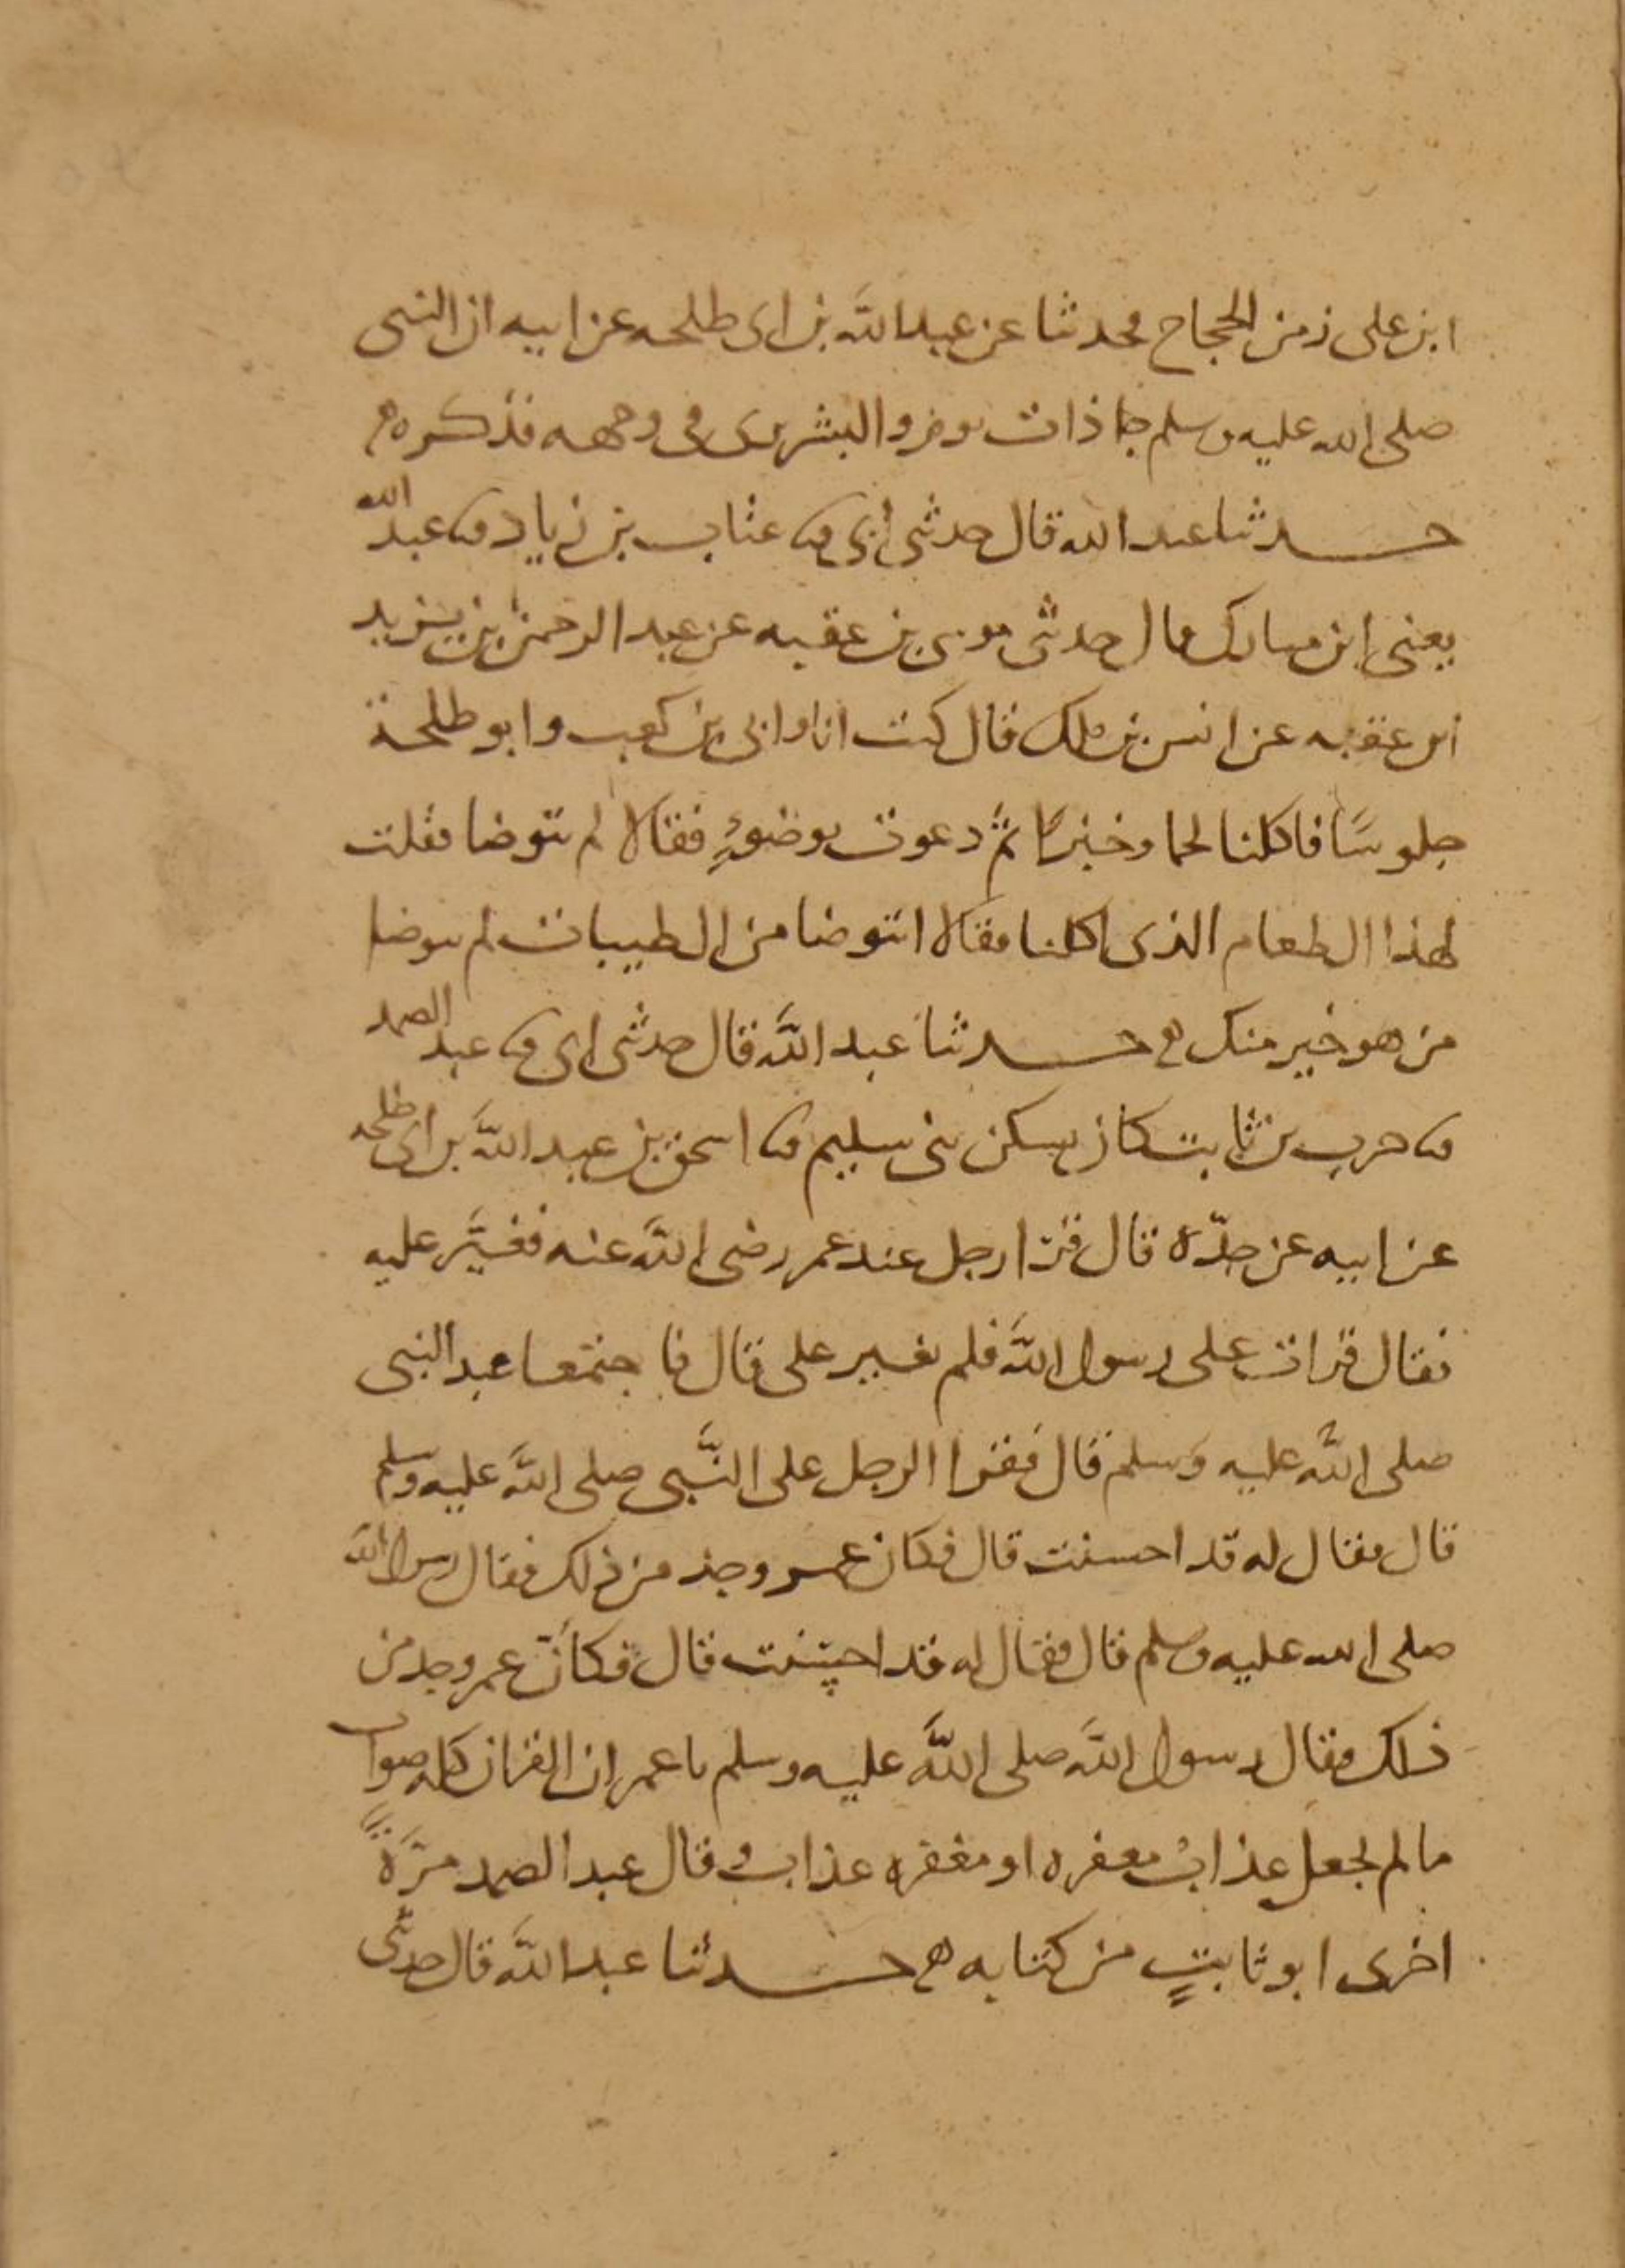 ابن على زمن الحجاج فحدثنا عن عبد الله بن ابى طلحه عن ابيه ان النبى
صلى الله عليه وسلم جا ذات يوم والبشرى فى وجهه فذكره
حدثنا عبد الله قال حدثنى ابى ثنا عتاب بن زياد ثنا عبد الله
يعنى ابن مبارك قال حدثنى موسى بن عقبه عن عبد الرحمن بن يزيد
ابن عقبه عن انس بن ملك قال كنت انا وابى بن كعب وابو طلحة
جلوسًا فاكلنا لحما وخبزًا ثمَّ دعوت بوضوءٍ فقالا لم تتوضا فقلت
لهذا الطعام الذى اكلنا فقالا اتتوضا من الطيبات لم يتوضا
من هو خير منك حدثنا عبد الله قال حدثنى ابى ثنا عبد الصمد
ثنا حرب بن ثابت كان يسكن بنى سليم ثنا اسحق بن عبد الله بن ابى طلحه
عن ابيه عن جدّه قال قرا رجل عند عمر رضى الله عنه فغيَّر عليه
فقال قرات على رسول الله فلم يغير على قال فاجتمعا عند النبى
صلى الله عليه وسلم قال فقرا الرجل على النَّبى صلى الله عليه وسلم
قال فقال له قد احسنت قال فكان عمر وجد من ذلك فقال رسول الله
صلى الله عليه وسلم قال فقال له قد احسنت قال فكانَّ عمر وجد من
ذلك فقال رسول الله صلى الله عليه وسلم يا عمر ان القران كله صواب
ما لم يجعل عذابٌ مغفره او مغفره عذاب وقال عبد الصمد مرَّةً
اخرى ابو ثابتٍ من كتابه حدثنا عبد الله قال حدثنى